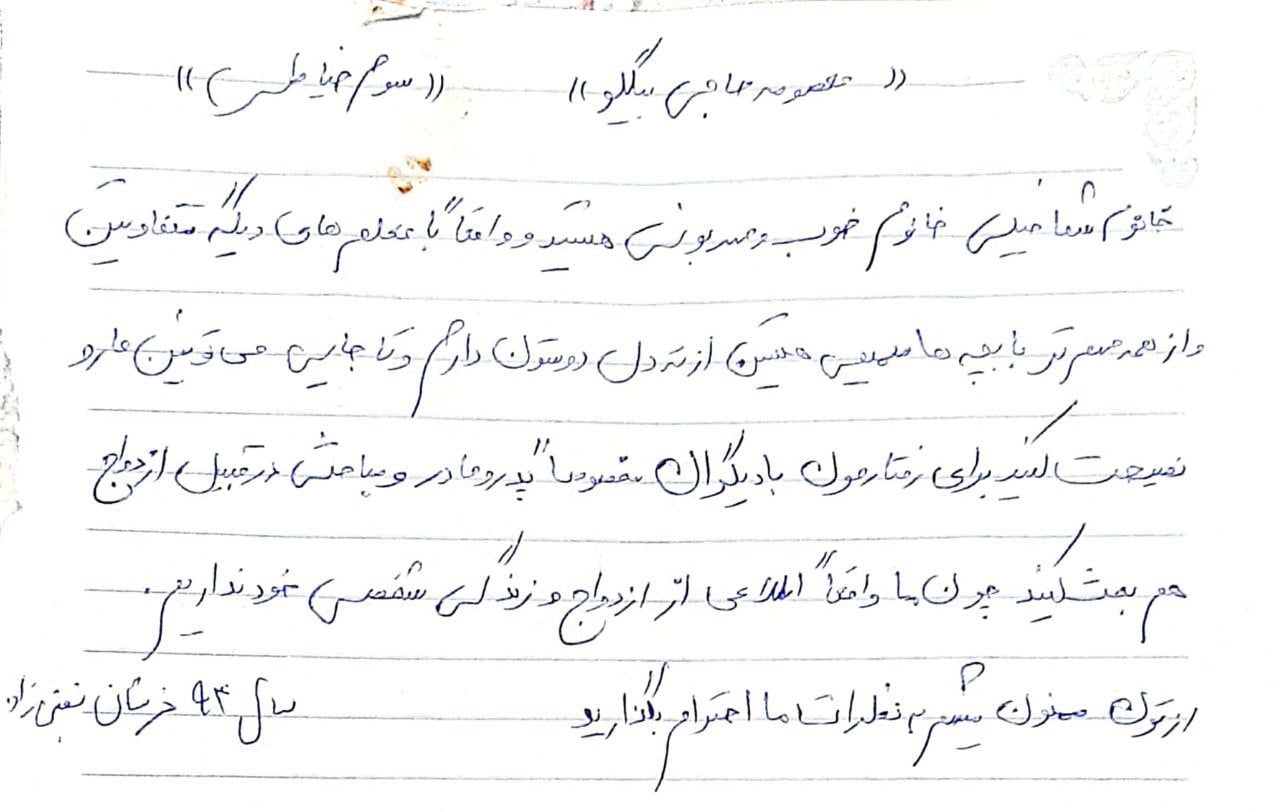 «معصومه حاجی بیگلو» «سوم خیاطی»
خانوم شما خیلی خانوم خوب و مهربونی هستید و واقعاً با معلم های دیگه متفاوتین
و از همه مهم تر با بچه ها صمیمی هستین از ته دل دوستون دارم و تا جایی می تونین مارو
نصیحت کنید برای رفتارمون با دیگران مخصوصاً پدر و مادر و مباحثی از قبیل ازدواج
هم بحث کنید چون ما واقعاً اطلاعی از ازدواج و زندگی شخصی خود نداریم.
ازتون ممنون میشم به نظرات ما احترام بگذارید سال ۹۳